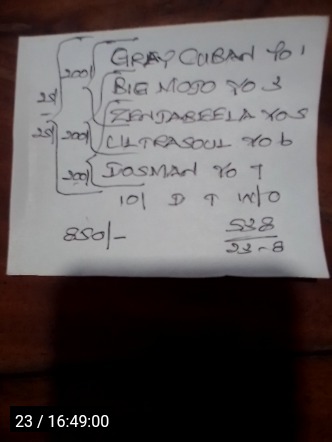 GRAY CUBAN Yo 1
200/ BIG MOJO Yo 3
25/ ZENDABEELA Yo 5
25/ 200/ ULTRASOUL Yo 6
200/ DOSMAN Yo 7
10/ D T W/O
850/- 538
23-8
23 / 16:49:00